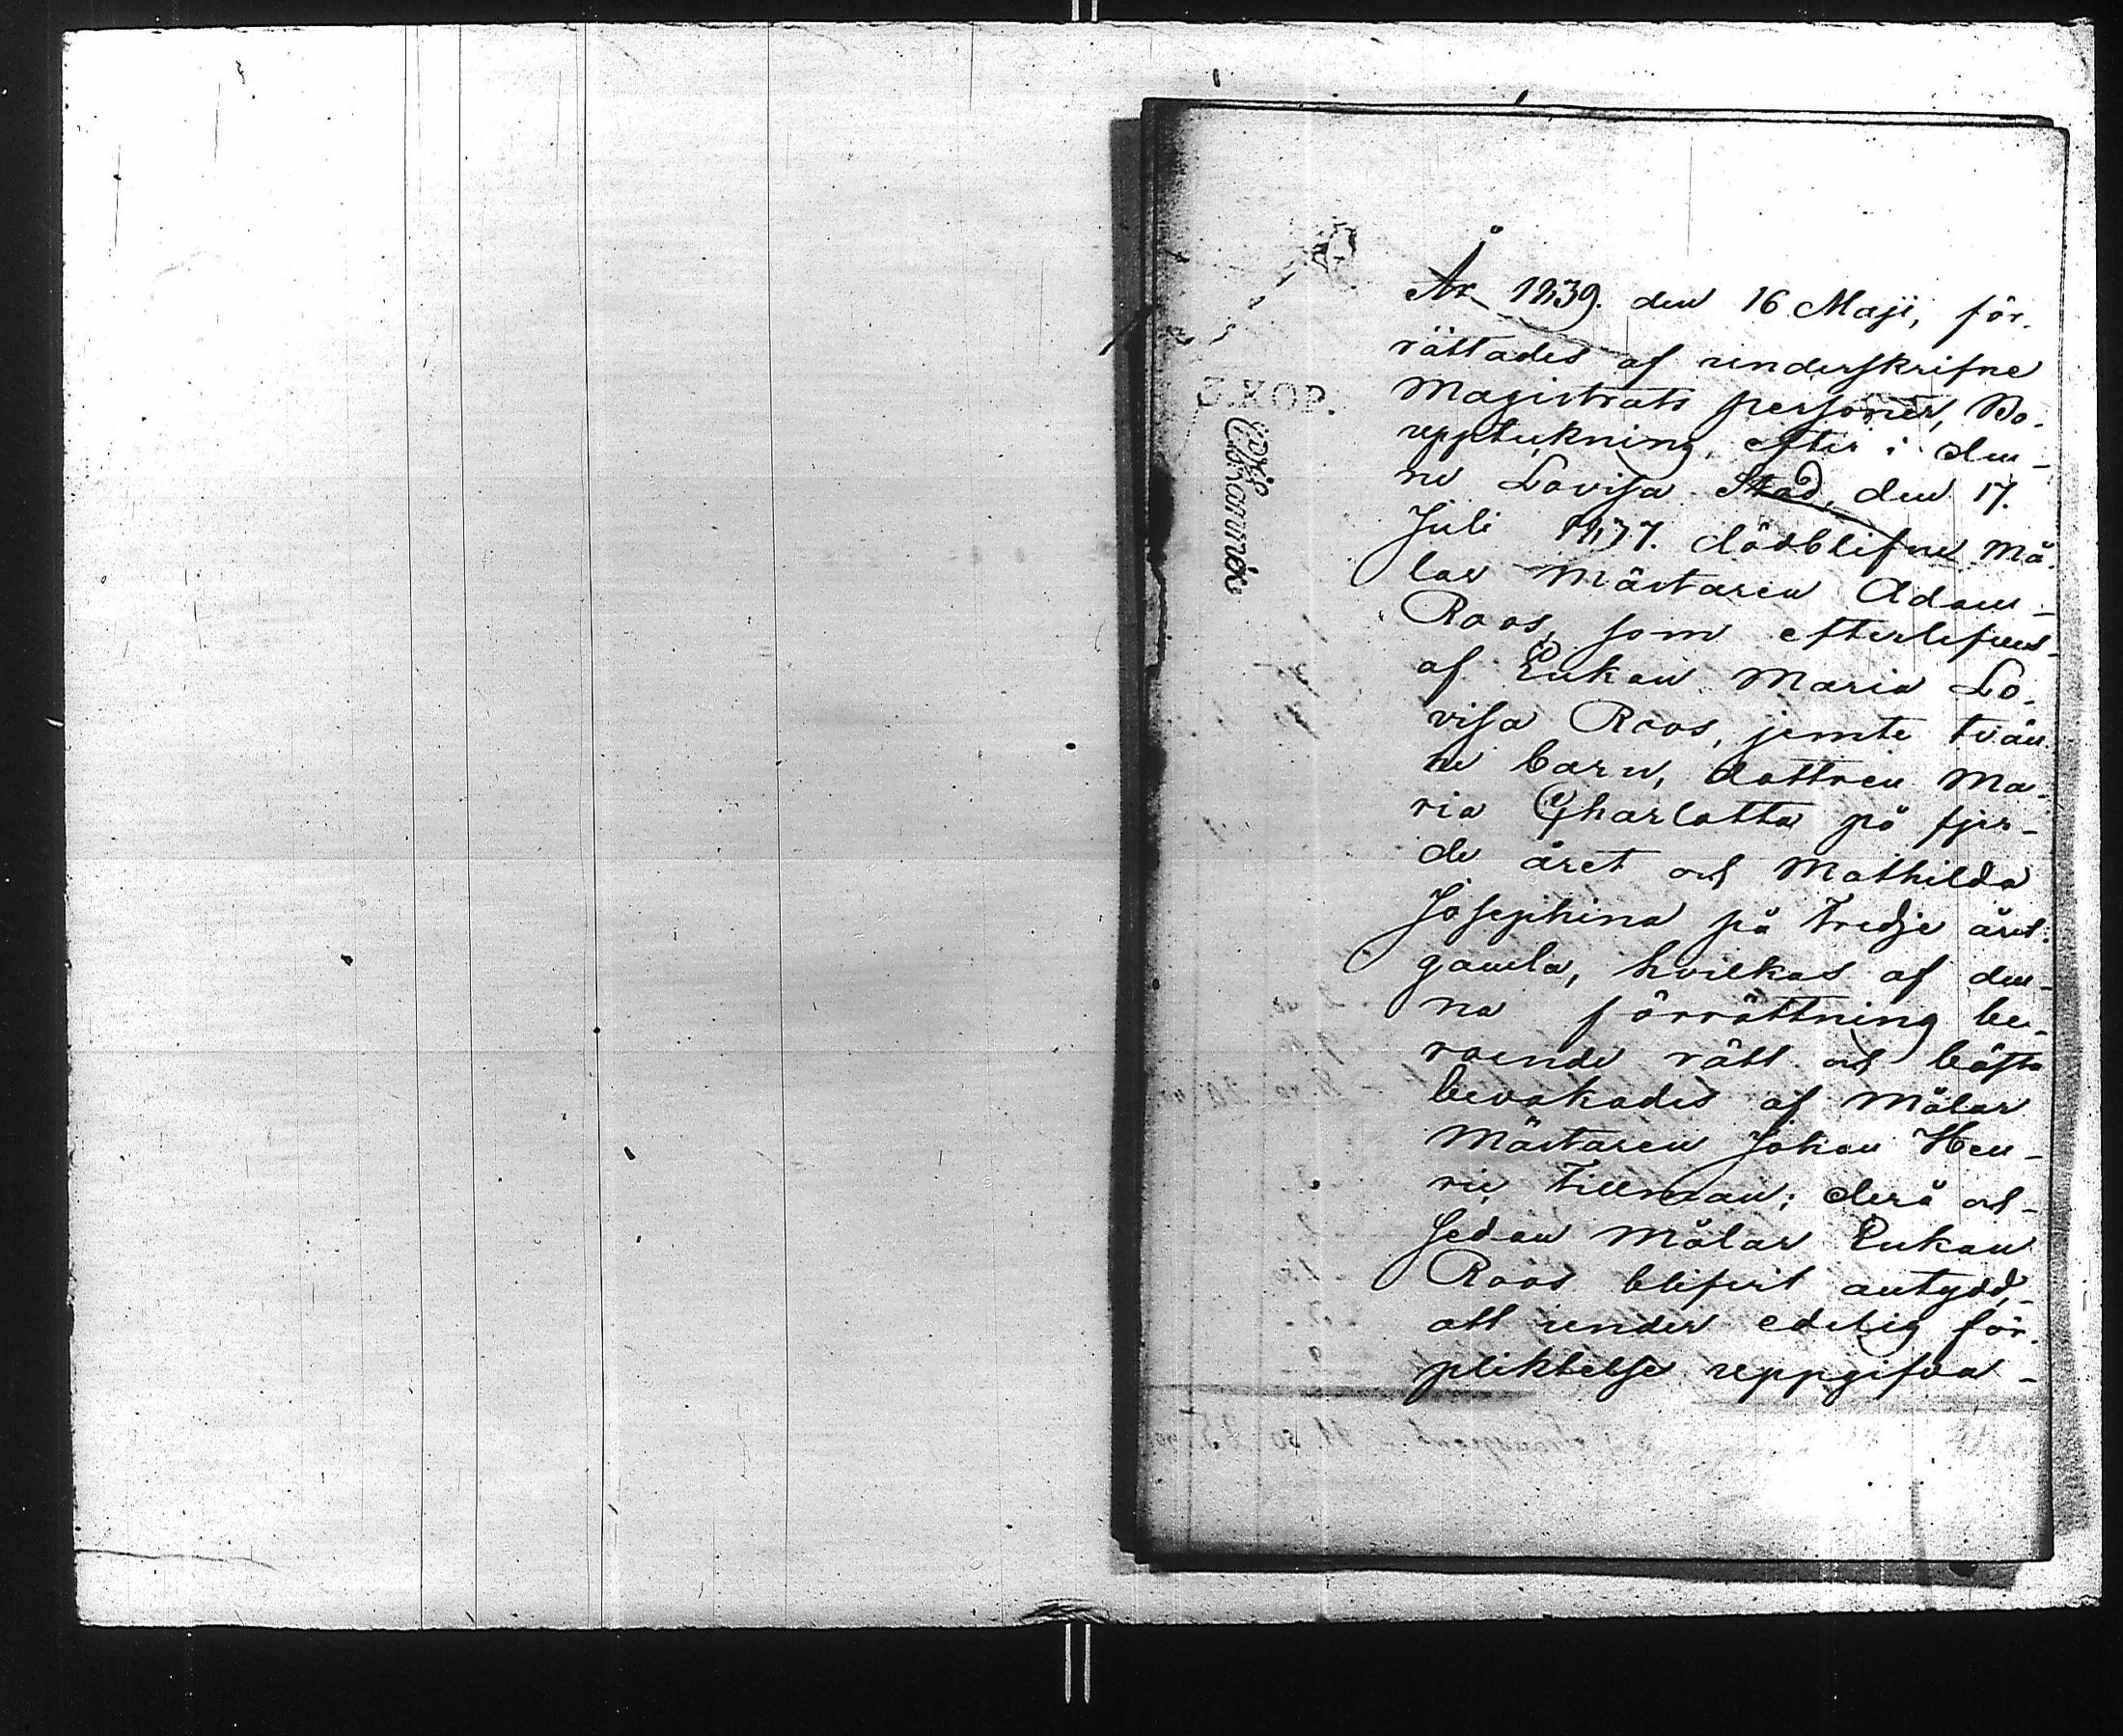 År 1839. den 16 Maji, för-
rättades af underskrifne
Magistrats personer, Bo-
uppteckning, efter i den-
ne Lovisa Stad, den 17.
Juli 1837. dödblifne Må-
lar Mästaren Adam
Roos, som efterlefves
af Enkan Maria Lo-
visa Roos, jemte tvän-
ne barn, dottren Ma-
ria Charlotta på fjer-
de året och Mathilda
Josephina på tredje året
gamla, hvilkas af den-
na förrättning be-
roende rätt och bästa
bevakades af Målar
Mästaren Johan Hen-
ric Tillman; derå och
sedan Målar Enkan
Roos blifvit antydd,
att under edelig för-
pliktelse uppgifva
3.KOP.